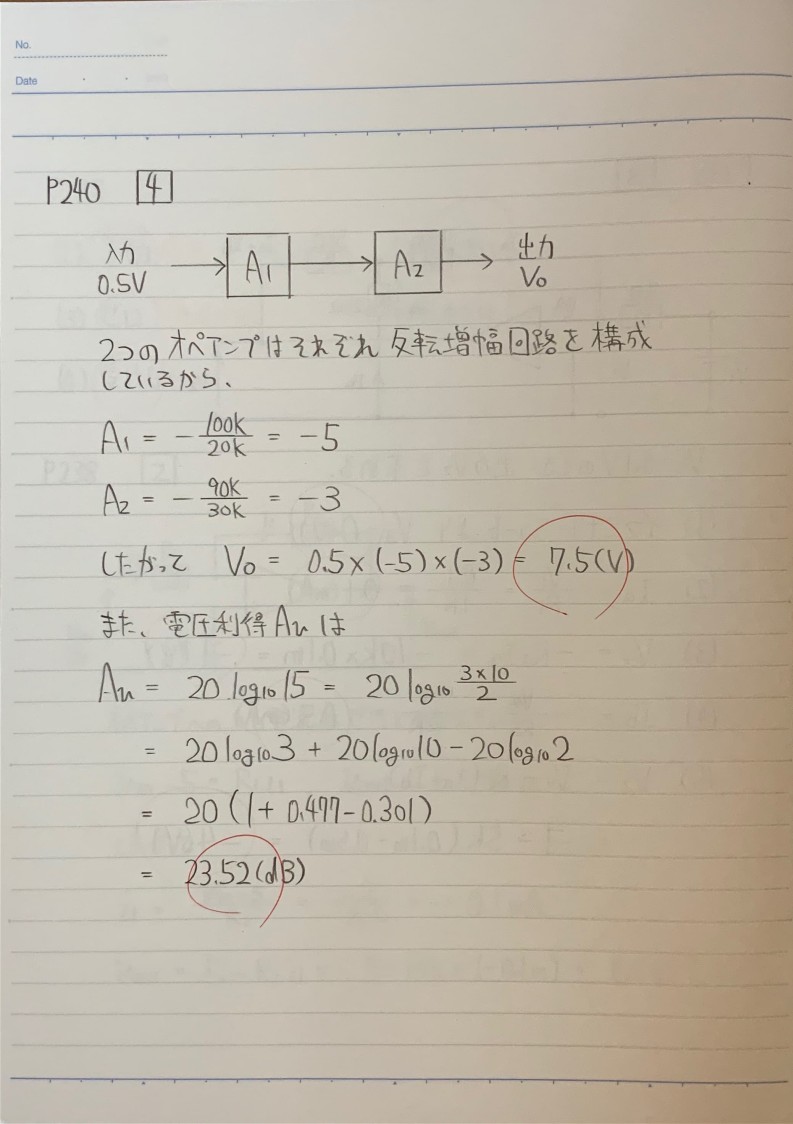 No.
Date
P240 4
入力 0.5V → A₁ → A₂ → 出力 V₀
2つのオペアンプはそれぞれ反転増幅回路を構成
しているから、
A₁ = - 100k/20k = -5
A₂ = - 90k/30k = -3
したがって V₀ = 0.5×(-5)×(-3) = 7.5(V)
また、電圧利得Auは
Au = 20 log₁₀15 = 20 log₁₀ 3×10/2
= 20log₁₀3 + 20log₁₀10 - 20log₁₀2
= 20(1+0.477-0.301)
= 23.52(dB)